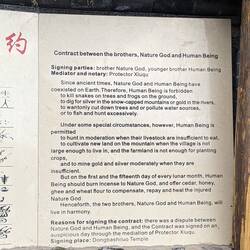 约
Contract between the brothers, Nature God and Human Being
Signing parties: brother Nature God, younger brother Human Being
Mediator and notary: Protector Xiuqu
Since ancient times, Nature God and Human Being have
coexisted on Earth. Therefore, Human Being is forbidden
to kill snakes on trees and frogs on the ground,
to dig for silver in the snow-capped mountains or gold in the rivers,
to wantonly cut down trees or pollute water sources,
or to fish and hunt excessively.
Under some special circumstances, however, Human Being is
permitted
to hunt in moderation when livestock are insufficient to eat,
to cultivate new land on the mountain when the village is not
large enough to live in, and the farmland is not enough for planting
crops,
and to mine gold and silver moderately when they are
insufficient.
But on the first and the fifteenth day of every lunar month, Human
Being should burn incense to Nature God, and offer cedar, honey,
ghee and wheat flour to compensate, repay and heal the injured
Nature God.
Henceforth, the two brothers, Nature God and Human Being, will
live in harmony.
Reasons for signing the contract: there was a dispute between
Nature God and Human Being, and the Contract was signed on an
auspicious day through the mediation of Protector Xiuqu.
Signing place: Dongbashiluo Temple